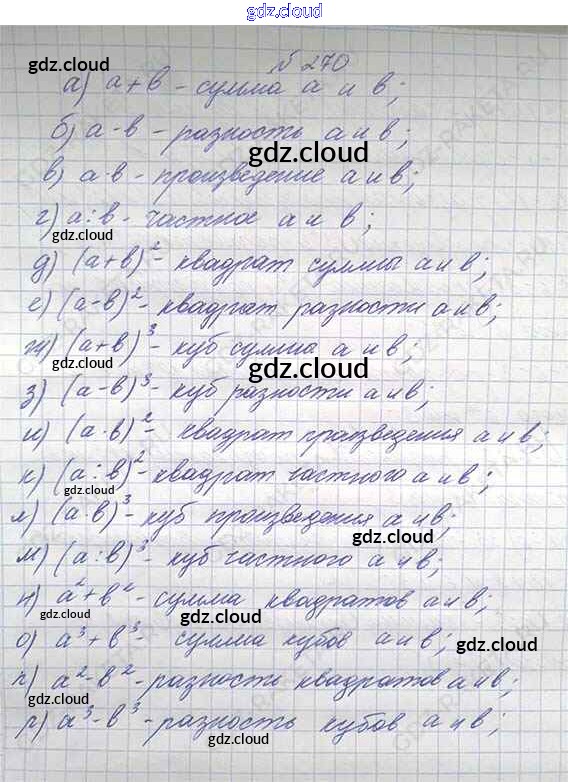 gdz.cloud
№ 270
gdz.cloud
а) а + в - сумма а и в;
б) а - в - разность а и в;
gdz.cloud
в) а · в - произведение а и в;
г) а : в - частное а и в;
gdz.cloud
д) (а + в)² - квадрат суммы а и в;
е) (а - в)² - квадрат разности а и в;
ж) (а + в)³ - куб сумма а и в;
gdz.cloud
gdz.cloud
з) (а - в)³ - куб разности а и в;
и) (а · в)² - квадрат произведения а и в;
к) (а : в)² - квадрат частного а и в;
gdz.cloud
л) (а · в)³ - куб произведения а и в;
gdz.cloud
м) (а : в)³ - куб частного а и в;
н) а² + в² - сумма квадратов а и в;
gdz.cloud
о) а³ + в³ - сумма кубов а и в;
gdz.cloud
п) а² - в² - разности квадратов а и в;
gdz.cloud
р) а³ - в³ - разность кубов а и в;
gdz.cloud